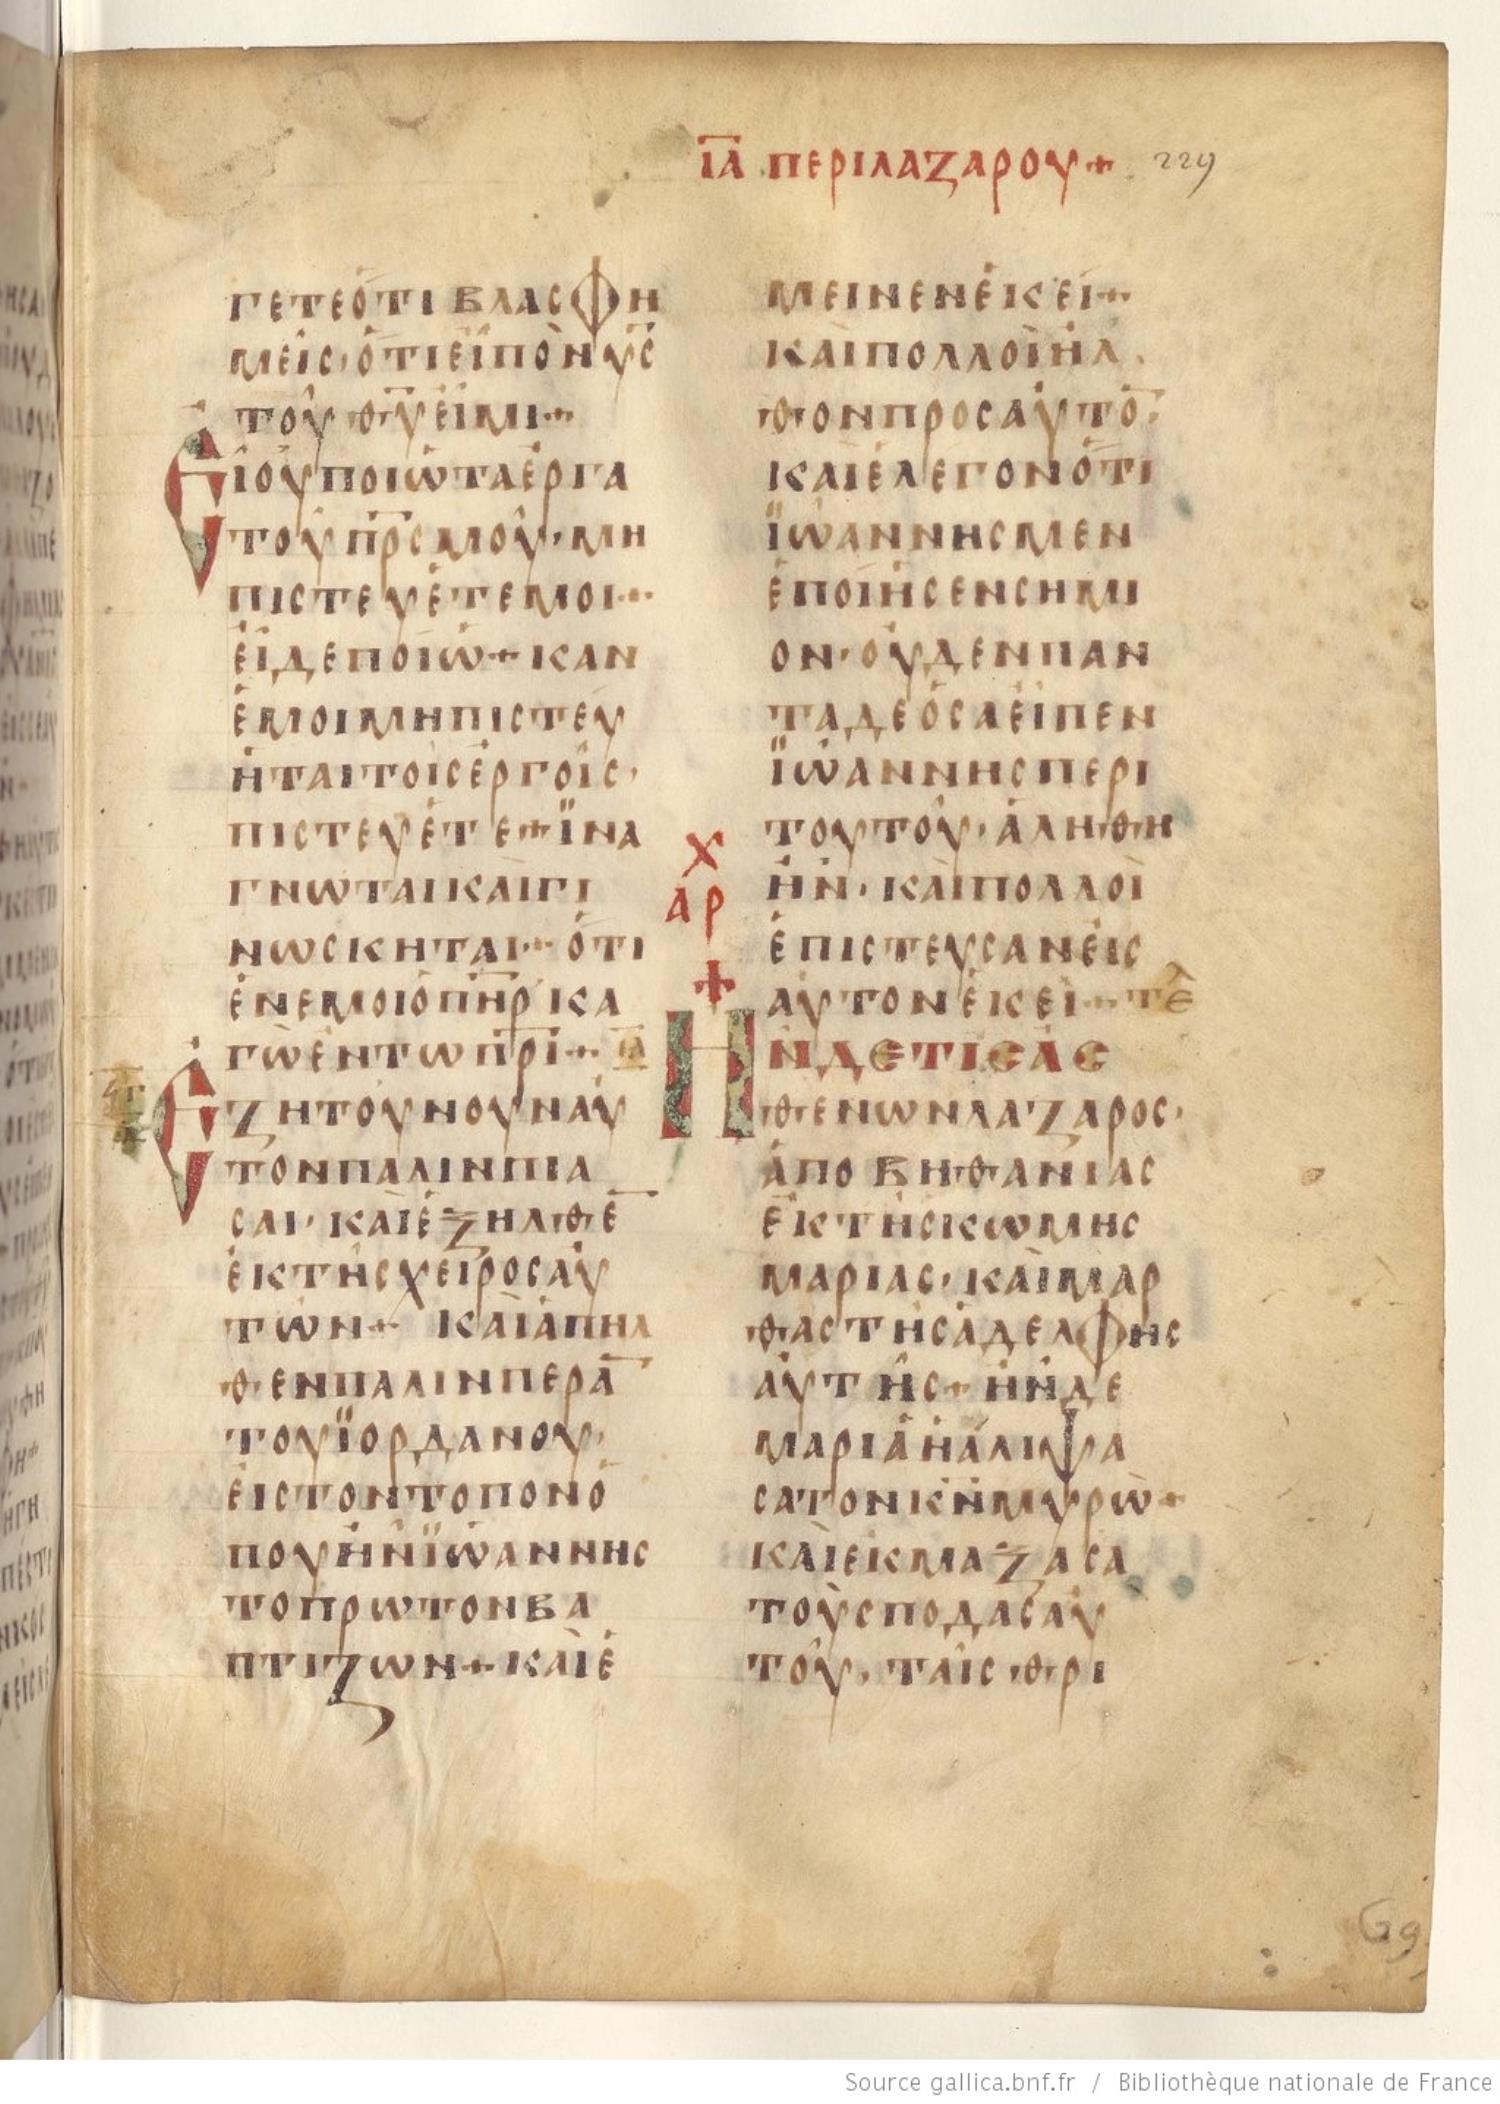 ΙΑ ΠΕΡΙ ΛΑΖΑΡΟΥ + 229
ΓΕΤΕ ὍΤΙ ΒΛΑΣΦΗ
ΜΕΙΣ· ὍΤΙ ΕἸΠΟΝ Υ̅Σ̅
ΤΟΥ Θ̅Υ̅ ΕἸΜΙ+
ΕἸ ΟΥ ΠΟΙΩ ΤΑ ἘΡΓΑ
ΤΟΥ Π̅Ρ̅Σ̅ ΜΟΥ· ΜΗ
ΠΙΣΤΕΥΕΤΕ ΜΟΙ··
ΕἸ ΔΕ ΠΟΙΩ+ ΚΑΝ
ἘΜΟΙ ΜΗ ΠΙΣΤΕΥ
ΗΤΑΙ ΤΟΙΣ ἘΡΓΟΙΣ·
ΠΙΣΤΕΥΕΤΕ+ ΪΝΑ
ΓΝΩΤΑΙ ΚΑΙ ΓΙ
ΝΩΣΚΗΤΑΙ·· ὍΤΙ
ἘΝ ΕΜΟΙ Ὁ Π̅Η̅Ρ̅ ΚΑ
ΓΩ ἘΝ ΤΩ Π̅Ρ̅Ι̅+ ΙΑ
ΕΖΗΤΟΥΝ ΟΥΝ ΑΥ
ΤΟΝ ΠΑΛΙΝ ΠΙΑ
ΣΑΙ· ΚΑΙ ἘΞΗΛΘΕ̅
ἘΚ ΤΗΣ ΧΕΙΡΟΣ ΑΥ
ΤΩΝ+ ΚΑΙ ἈΠΗΛ
ΘΕΝ ΠΑΛΙΝ ΠΕΡΑ̅
ΤΟΥ ΪΟΡΔΑΝΟΥ·
ΕἸΣ ΤΟΝ ΤΟΠΟΝ Ὁ
ΠΟΥ ΗΝ ΪΩΑΝΝΗΣ
ΤΟ ΠΡΩΤΟΝ ΒΑ
ΠΤΙΖΩΝ+ ΚΑΙ Ἐ
ΜΕΙΝΕΝ ἘΚΕΙ+
ΚΑΙ ΠΟΛΛΟΙ ΗΛ
ΘΟΝ ΠΡΟΣ ΑΥΤΟ̅·
ΚΑΙ ἘΛΕΓΟΝ ὍΤΙ
ΪΩΑΝΝΗΣ ΜΕΝ
ἘΠΟΙΗΣΕΝ ΣΗΜΙ
ΟΝ· ΟΥΔΕΝ ΠΑΝ
ΤΑ ΔΕ ὉΣΑ ΕἸΠΕΝ
ΪΩΑΝΝΗΣ ΠΕΡΙ
ΤΟΥΤΟΥ· ἈΛΗΘΗ
ΗΝ· ΚΑΙ ΠΟΛΛΟΙ
ἘΠΙΣΤΕΥΣΑΝ ΕἸΣ
ΑΥΤΟΝ ἘΚΕΙ+ ΤΕ
Χ
ΑΡ
+
ΗΝ ΔΕ ΤΙΣ ΑΣ
ΘΕΝΩΝ ΛΑΖΑΡΟΣ·
ἈΠΟ ΒΗΘΑΝΙΑΣ
ἘΚ ΤΗΣ ΚΩΜΗΣ
ΜΑΡΙΑΣ· ΚΑΙ ΜΑΡ
ΘΑΣ ΤΗΣ ἈΔΕΛΦΗΣ
ΑΥΤΗΣ+ ΗΝ ΔΕ
ΜΑΡΙΑ Η ἈΛΙΨΑ
ΣΑ ΤΟΝ Κ̅Ν̅ ΜΥΡΩ+
ΚΑΙ ΕΚΜΑΞΑΣΑ
ΤΟΥΣ ΠΟΔΑΣ ΑΥ
ΤΟΥ· ΤΑΙΣ ΘΡΙ
Source gallica.bnf.fr / Bibliothèque nationale de France